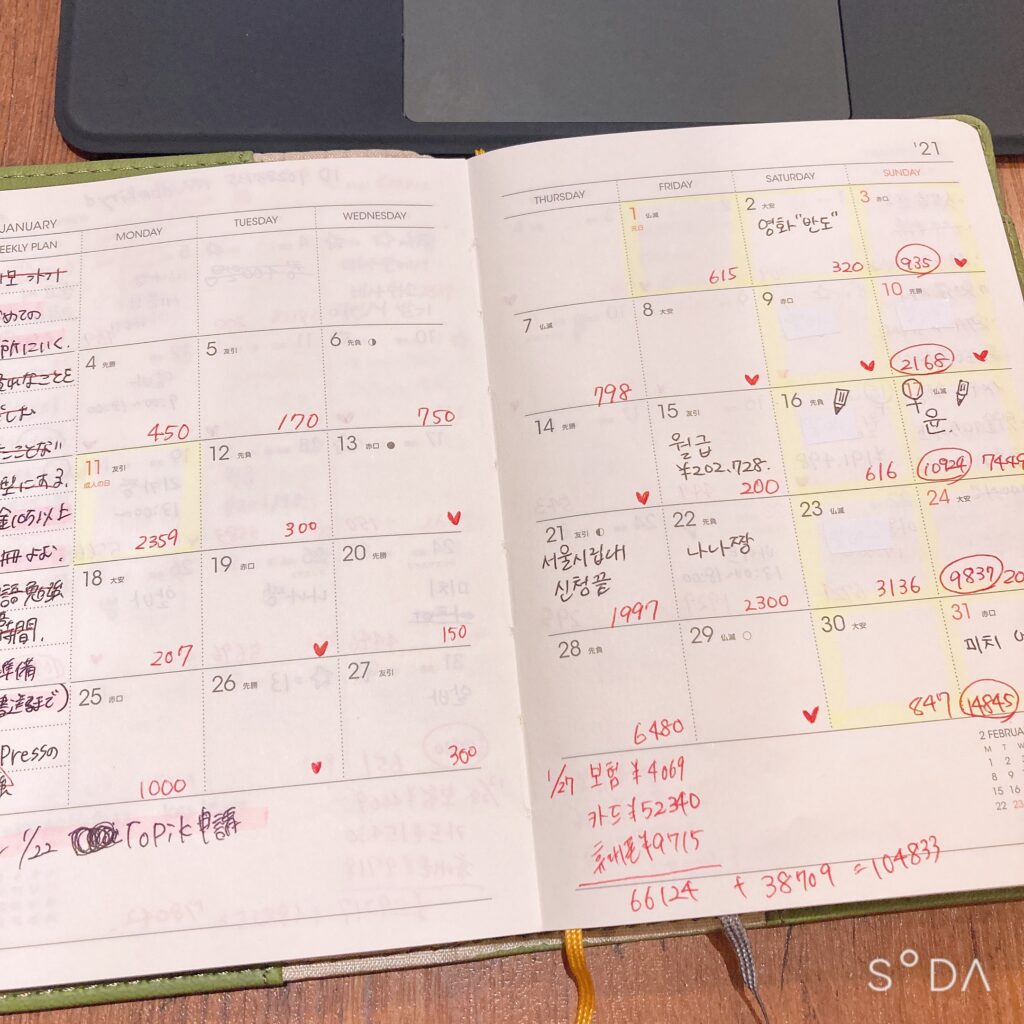 JANUARY
EEKLY PLAN
MONDAY
TUESDAY
WEDNESDAY
めての
所にいく.
型にある.
冊よむ.
語勉強
時間.
準備
Pressの
4 先勝
450
5 友引
170
6 先負
750
11 友引
成人の日
2359
12 先負
300
13 赤口
18 大安
207
19 赤口
20 先勝
150
25 赤口
1000
26 先勝
27 友引
300
1/22 Topik申請
'21
THURSDAY
FRIDAY
SATURDAY
SUNDAY
1 仏滅
元日
615
2 大安
영화"반도"
320
3 赤口
935
7 仏滅
798
8 大安
9 赤口
10 先勝
2168
14 先勝
15 友引
월급
¥202.728.
200
16 先負
616
17 仏滅
윤.
10924
7449
21 友引
서울시립대
신청끝
1997
22 先負
나나짱
2300
23 仏滅
3136
24 大安
9837
20
28 先負
6480
29 仏滅
30 大安
847
31 赤口
미치
14845
1/27 보험 ¥4069
카드 ¥52340
휴대폰 ¥9715
66124 + 38709 = 104833
2 FEBRUA
M T W
1 2 3
8 9
15 16
22 23
SODA